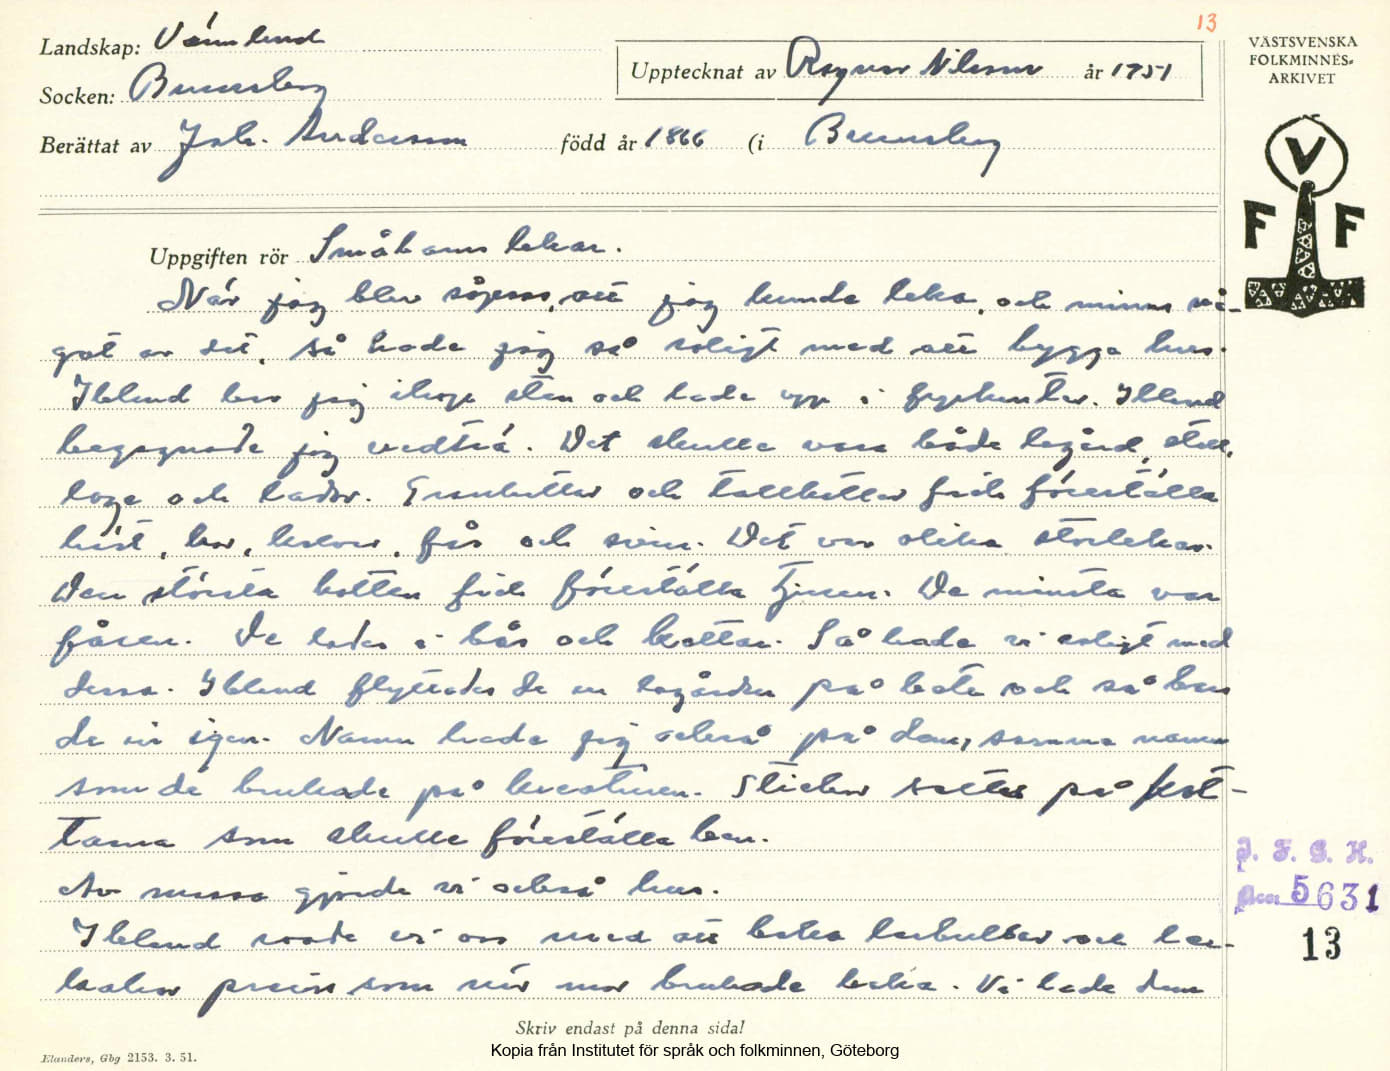 13
Landskap: Värmland
Socken: Brunskog
Upptecknat av Ragnar Nilsson år 1951
VÄSTSVENSKA
FOLKMINNES-
ARKIVET
Berättat av Joh. Andersson född år 1866 (i Brunskog
V
F F
Uppgiften rör Småbarns lekar.
När jag blev såpass, att jag kunde leka, och minns nå-
got av det, så hade jag så roligt med att bygga hus.
Ibland bar jag ihop sten och lade upp i fyrkanter. Ibland
begagnade jag vedträ. Det skulle vara både lagård, stall,
loge och lador. Grankottar och tallkottar fick föreställa
häst, kor, kalvar, får och svin. Det var olika storlekar.
Den största kotten fick föreställa tjuren. De minsta var
fåren. De lades i bås och kättar. Så hade vi roligt med
dessa. Ibland flyttades de ur lagården på bete och så bars
de in igen. Namn hade jag också på dem, samma namn
som de brukade på kreaturen. Stickor sattes på kot-
tarna som skulle föreställa ben.
Av mossa gjorde vi också hus.
Ibland roade vi oss med att baka lerbullar och ler-
kakor precis som när mor brukade baka. Vi hade dem
J. F. G. H.
Acc. 5631
13
Skriv endast på denna sida!
Elanders, Gbg 2153. 3. 51.
Kopia från Institutet för språk och folkminnen, Göteborg